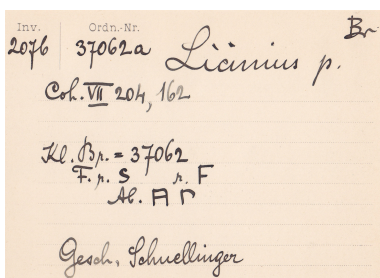 Inv. Ordn.-Nr. Br
2076 37062a Licinius p.
Coh. VII 204, 162
Kl. Br. = 37062
F. p. S r. F
Ab. A Γ
Gesch. Schnellinger